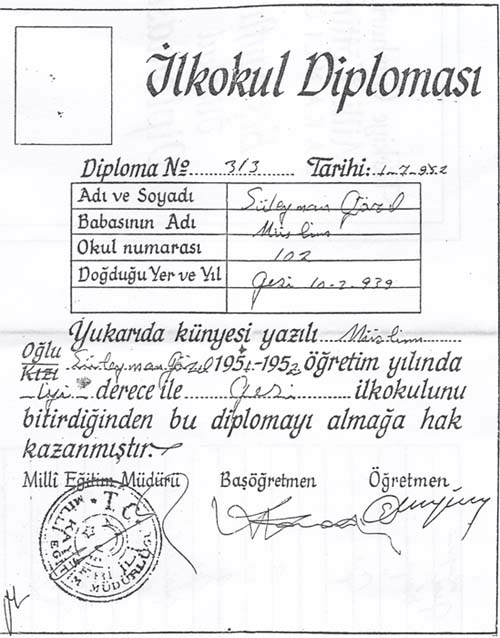 İlkokul Diploması
Diploma № 313 Tarihi: 1-7-952
Adı ve Soyadı Süleyman Güzel
Babasının Adı Müslim
Okul numarası 102
Doğduğu Yer ve Yıl Gesi 10-2-939
Yukarıda künyesi yazılı Müslim
Oğlu
Kızı Süleyman Güzel 1951-1952 öğretim yılında
İyi derece ile Gesi ilkokulunu
bitirdiğinden bu diplomayı almağa hak
kazanmıştır.
Millî Eğitim Müdürü Başöğretmen Öğretmen
T.C.
MİLLİ EĞİTİM MÜDÜRLÜĞÜ